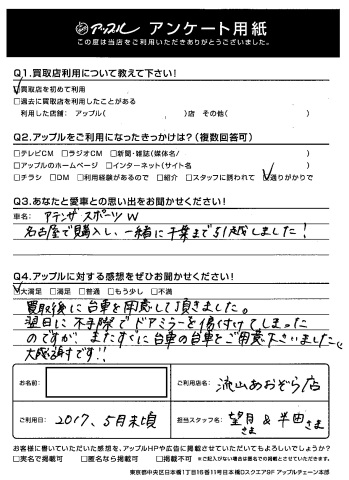 アップル アンケート用紙
この度は当店をご利用いただきありがとうございました。
Q1.買取店利用について教えて下さい!
☑買取店を初めて利用
□過去に買取店を利用したことがある
利用した店舗: アップル( )店 その他( )
Q2.アップルをご利用になったきっかけは?(複数回答可)
□テレビCM □ラジオCM □新聞・雑誌(媒体名/ )
□アップルのホームページ □インターネット(サイト名 )
□チラシ □DM □利用経験があるので □紹介 □スタッフに誘われて ☑通りがかりで
Q3.あなたと愛車との思い出をお聞かせください!
車名: アテンザスポーツW
名古屋で購入し、一緒に千葉まで引越しました!
Q4.アップルに対する感想をぜひお聞かせください!
☑大満足 □満足 □普通 □もう少し □不満
買取後に台車を用意して頂きました。
翌日に不手際でドアミラーを傷付けてしまった
のですが、またすぐに台車の台車をご用意下さいました。
大感謝です!!
お名前:
ご利用店名: 流山あおぞら店
ご利用日: 2017、5月末頃
担当スタッフ名: 望月さま & 半田さま
お客様に書いていただいた感想を、アップルHPや広告に掲載させていただいてもよろしいでしょうか?
□実名で掲載可 □匿名なら掲載可 □掲載不可 ※ご記入がない場合は匿名での掲載とさせていただきます。
東京都中央区日本橋1丁目16番11号日本橋Dスクエア9F アップルチェーン本部